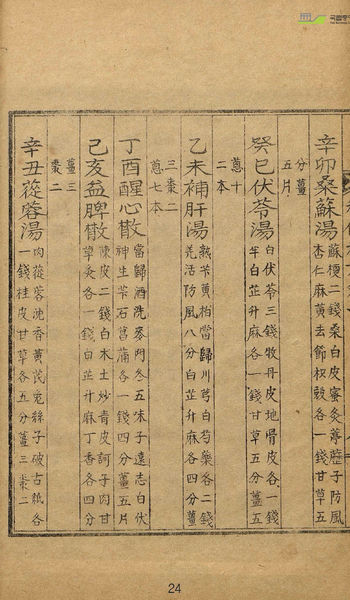 辛卯桑蘇湯
蘇梗二錢桑白皮蜜灸薄荷子防風
杏仁麻黄去節枳殼各一錢甘草五
分薑
五片
癸巳伏苓湯
白伏苓三錢牧丹皮地骨皮各一錢
半白芷升麻各一錢甘草五分薑五
葱十
二本
乙未補肝湯
熟芐黄柏當歸川芎白芍藥各二錢
羌活防風八分白芷升麻各四分薑
三棗二
葱七本
丁酉醒心散
當歸酒洗麥門冬五味子遠志白伏
神生芐石菖蒲各一錢四分薑五片
己亥益脾散
陳皮二錢白木土炒青皮訶子肉甘
草灸各一錢白芷升麻丁香各四分
薑三
棗二
辛丑蓯蓉湯
肉蓯蓉沈香黄芪兎絲子破古紙各
一錢桂皮甘草各五分薑三棗二
24